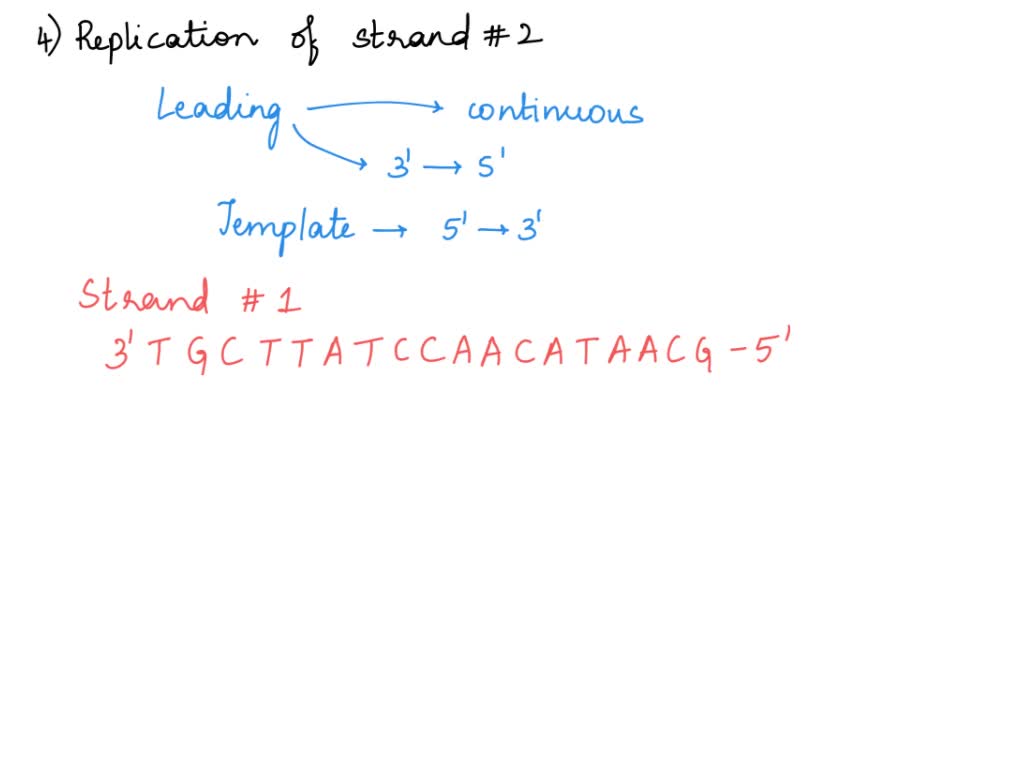 4) Replication of strand #2
Leading → continuous
→ 3' → 5'
Template → 5' → 3'
Strand #1
3' T G C T T A T C C A A C A T A A C G - 5'